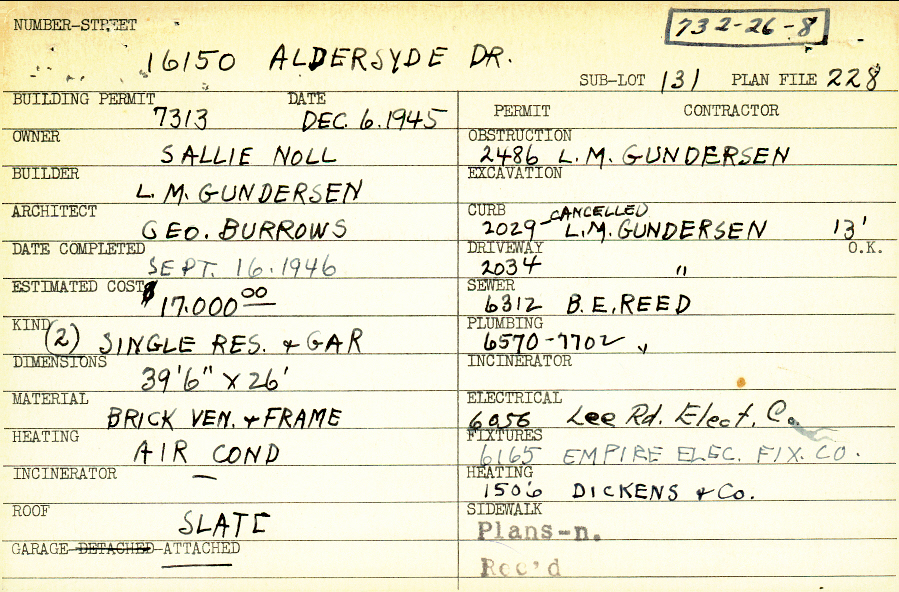 NUMBER-STREET
732-26-8
16150 ALDERSYDE DR.
SUB-LOT 131 PLAN FILE 228
BUILDING PERMIT 7313 DATE DEC. 6. 1945
OWNER SALLIE NOLL
BUILDER L. M. GUNDERSEN
ARCHITECT GEO. BURROWS
DATE COMPLETED SEPT. 16. 1946
ESTIMATED COST $ 17.000 00
KIND (2) SINGLE RES. & GAR
DIMENSIONS 39'6" X 26'
MATERIAL BRICK VEN. & FRAME
HEATING AIR COND
INCINERATOR —
ROOF SLATE
GARAGE-DETACHED-ATTACHED
PERMIT CONTRACTOR
OBSTRUCTION 2486 L. M. GUNDERSEN
EXCAVATION
CURB 2029- CANCELLED L.M. GUNDERSEN 13'
DRIVEWAY 2034 " O.K.
SEWER 6312 B. E. REED
PLUMBING 6570-7702 "
INCINERATOR
ELECTRICAL 6056 Lee Rd. Elect. Co.
FIXTURES 6165 EMPIRE ELEC. FIX. CO.
HEATING 1506 DICKENS & Co.
SIDEWALK
Plans-n.
Rec'd